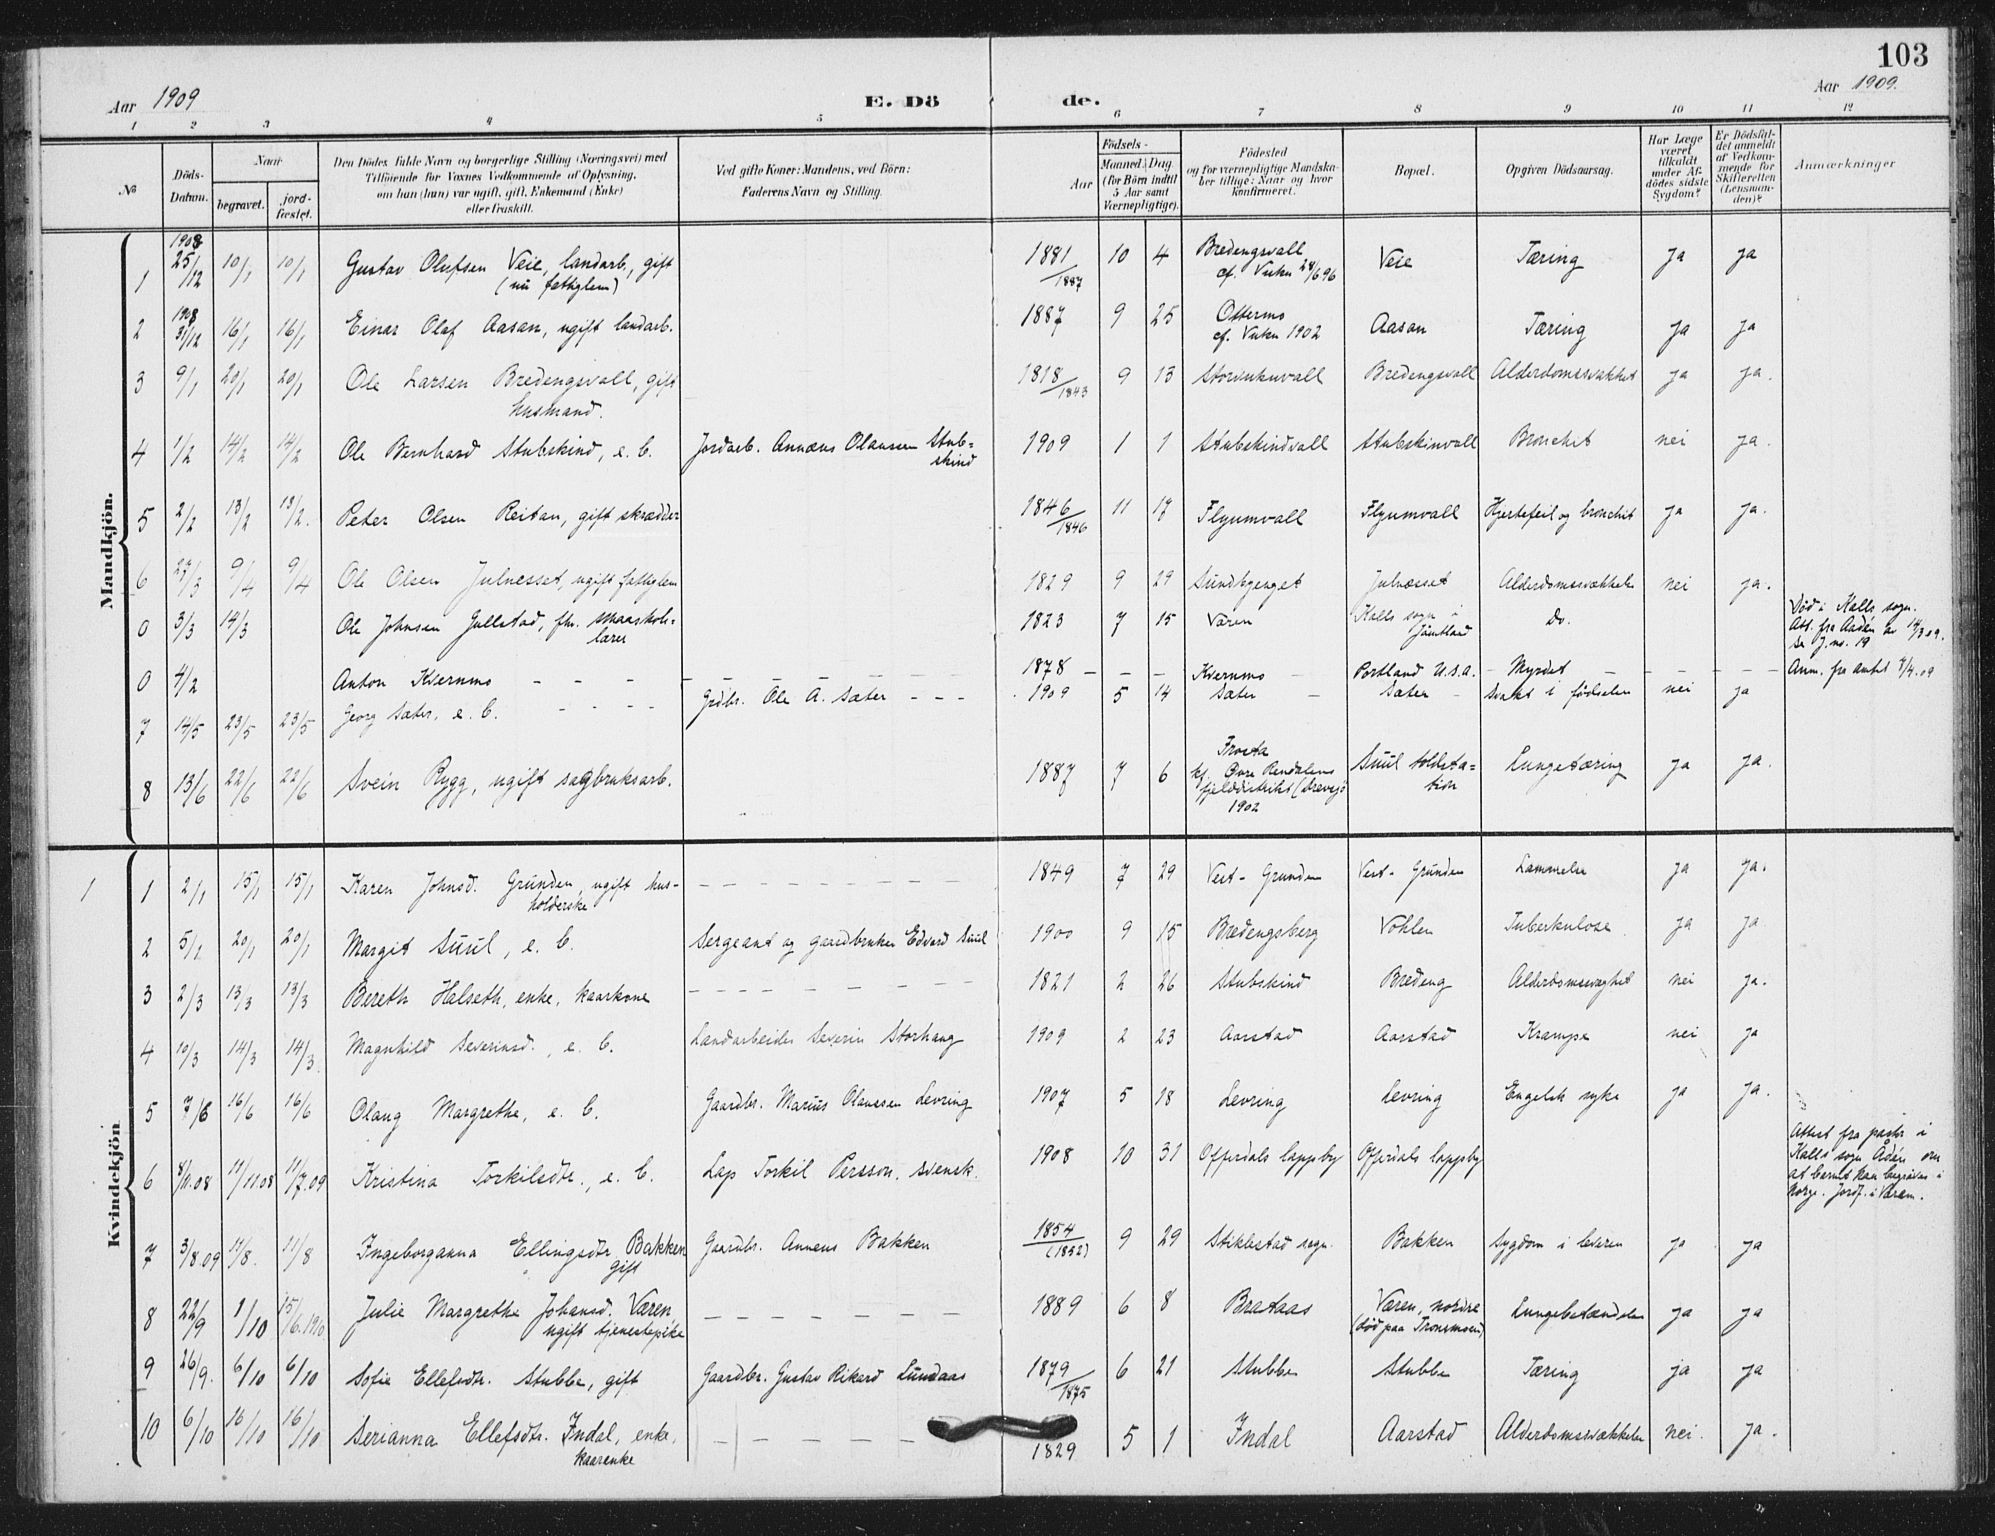 103
Aar 1909
E. Dö
de.
Aar 1909.
1 2 3 4 5 6 7 8 9 10 11 12
No
Döds-Datum.
Naar
begravet.
jord-fæstet.
Den Dödes fulde Navn og borgerlige Stilling (Næringsvei) med
Tilföiende for Voxnes Vedkommende af Oplysning,
om han (hun) var ugift, gift, Enkemand (Enke)
eller fraskilt.
Ved gifte Koner: Mandens, ved Börn:
Faderens Navn og Stilling.
Födsels-
Aar
Maaned. Dag
(for Börn indtil
5 Aar samt
Værnepligtige).
Födested
og for værnepligtige Mandskaber tillige: Naar og hvor
konfirmeret.
Bopæl.
Opgiven Dödsaarsag.
Har Læge
været
tilkaldt
under Afdödes sidste
Sygdom?
Er Dödsfaldet anmeldt
af Vedkommende for
Skifteretten
(Lensmanden)?
Anmærkninger
Mandkjön.
1 1908 25/12 10/1 10/1 Gustav Olufsen Veie, landarb., gift (nu fattiglem) 1881/1887 10 4 Bredengsvall cf. Vuku 28/6 96 Veie Tæring ja ja
2 1908 31/12 16/1 16/1 Einar Olaf Aasan, ugift landarb. 1887 9 25 Ottermo cf. Vuku 1902 Aasan Tæring ja ja
3 9/1 20/1 20/1 Ole Larsen Bredengsvall, gift husmand. 1818/1843 9 13 Storvukuvall Bredengsvall Alderdomssvakhet ja ja.
4 1/2 14/2 14/2 Ole Bernhard Stubskind, e. b. Jordarb. Annæus Olaussen Stubskind 1909 1 1 Stubskindvall Stubskinvall Bronchit nei ja.
5 2/2 13/2 13/2. Peter Olsen Reitan, gift skrædder 1846/1846 11 17 Flyumvall Flyumvall Hjertefeil og bronchit ja ja.
6 27/3 9/4 9/4 Ole Olsen Julnesset, ugift fattiglem 1829 9 29 Sundbyenget Julnæsset nei ja.
0 3/3 14/3 Ole Johnsen Gullstad, fhv. smaaskolelærer 1823 7 15 Væren Kalls sogn i Jämtland Do. Död i Kalls sogn. Att. fra Aadén av 14/3 09. Se J.no. 19
0 4/2 Anton Kvernmo - - - - 1878 - - - Kvernmo - Portland U.S.A. - Myrdet - - - Anm. fra amtet 8/4.09
7 14/5 23/5 23/5 Georg Sæter, e. b. - - - Grdbr. Ole A. Sæter - - - 1909 5 14 Sæter - Sæter - Svakt i födselen nei ja
8 13/6 22/6 22/6 Svein Rygg, ugift sagbruksarb. 1887 7 6 Frosta kf. Övre Rendalens fjelddistrikt (Drevsjö 1902 Suul toldstation Lungetæring ja ja.
Kvindekjön
1 1 2/1 15/1 15/1 Karen Johnsd. Grunden, ugift husholderske - - - - 1849 7 29 Vest-Grunden Vest-Grunden Lammelse ja ja.
2 5/1 20/1 20/1 Margit Suul, e. b. Sergeant og gaardbruker Edvard Suul 1900 9 15 Bredengsberg Vohlen Tuberkulose ja ja
3 2/3 13/3 13/3 Bereth Halseth, enke, kaarkone - - - - 1821 2 26 Stubskind Bredeng Alderdomssvaghet nei ja.
4 10/3 14/3 14/3. Magnhild Severinsd., e. b. Landarbeider Severin Storhaug 1909 2 23 Aarstad Aarstad Krampe nei ja
5 7/6 16/6 16/6 Olaug Margrethe, e. b. Gaardbr. Marius Olaussen Levring 1907 5 18 Levring Levring Engelsk syke ja ja.
6 8/11.08 11/11 08 11/7.09 Kristina Torkilsdtr., e. b. Lap Torkil Persson, svensk. 1908 10 31 Offerdals lappby Offerdals lappby Attest fra pastor i Kalls sogn Ådén om at barnet kan begraves i Norge. Jordf. i Væren.
7 3/8.09 11/8. 11/8 Ingeborganna Ellingsdtr. Bakken gift Gaardbr. Annæus Bakken 1854 (1852) 9 29 Stiklestad sogn. Bakken Sygdom i leveren ja ja
8 22/9 1/10 15/6.1910 Julie Margrethe Johansd. Væren, ugift tjenestepike - - - - 1889 6 8 Brataas Væren, nordre (död paa Tronsmoen) Lungebetændelse ja ja
9 26/9. 6/10 6/10 Sofie Ellefsdtr. Stubbe, gift Gaardbr. Gustav Rikard Lundaas 1879/1875 6 21 Stubbe Stubbe Tæring ja ja
10 6/10 16/10 16/10 Serianna Ellefsdtr. Indal, enke, kaarenke - - - - 1829 5 1 Indal Aarstad nei. ja.